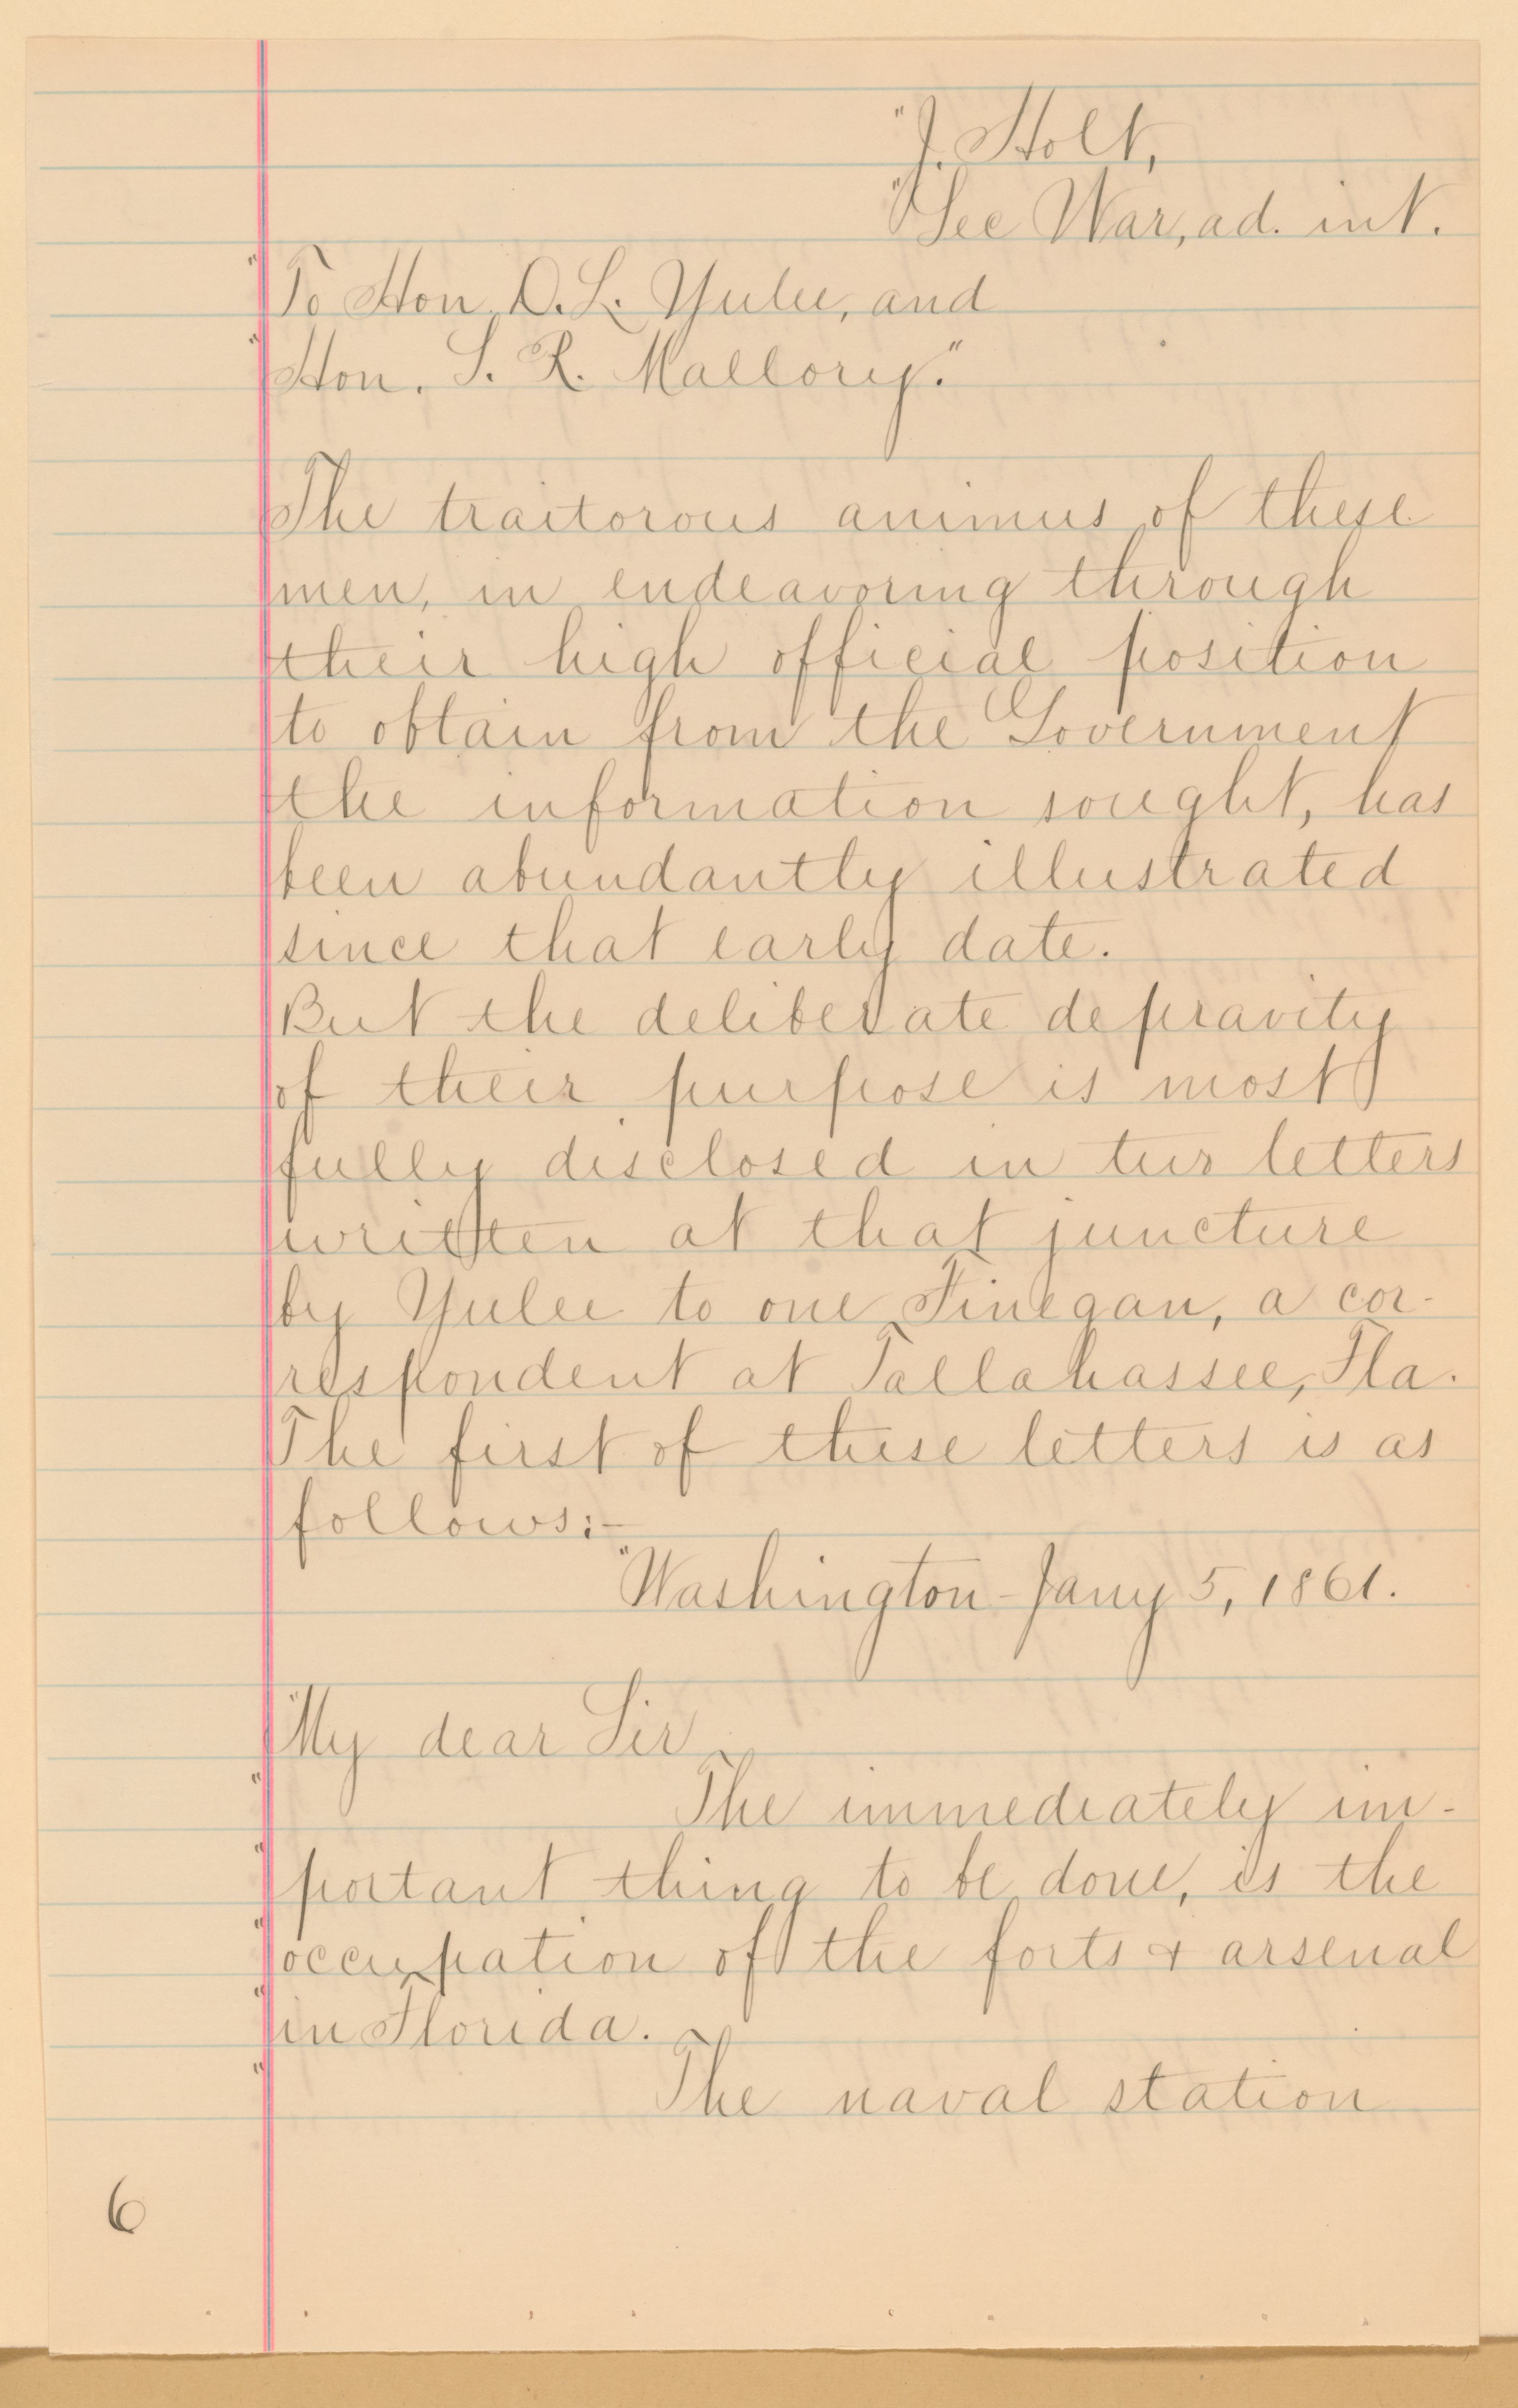 "J. Holt,
"Sec War, ad. int.
"To Hon. D. L. Yulee, and
"Hon. S. R. Mallory."
The traitorous animus of these
men, in endeavoring through
their high official position
to obtain from the Government
the information sought, has
been abundantly illustrated
since that early date.
But the deliberate depravity
of their purpose is most
fully disclosed in two letters
written at that juncture
by Yulee to one Finegan, a cor-
respondent at Tallahassee, Fla.
The first of these letters is as
follows:-
"Washington - Jany 5, 1861.
"My dear Sir
" The immediately im-
" portant thing to be done, is the
" occupation of the forts & arsenal
" in Florida.
" The naval station
6